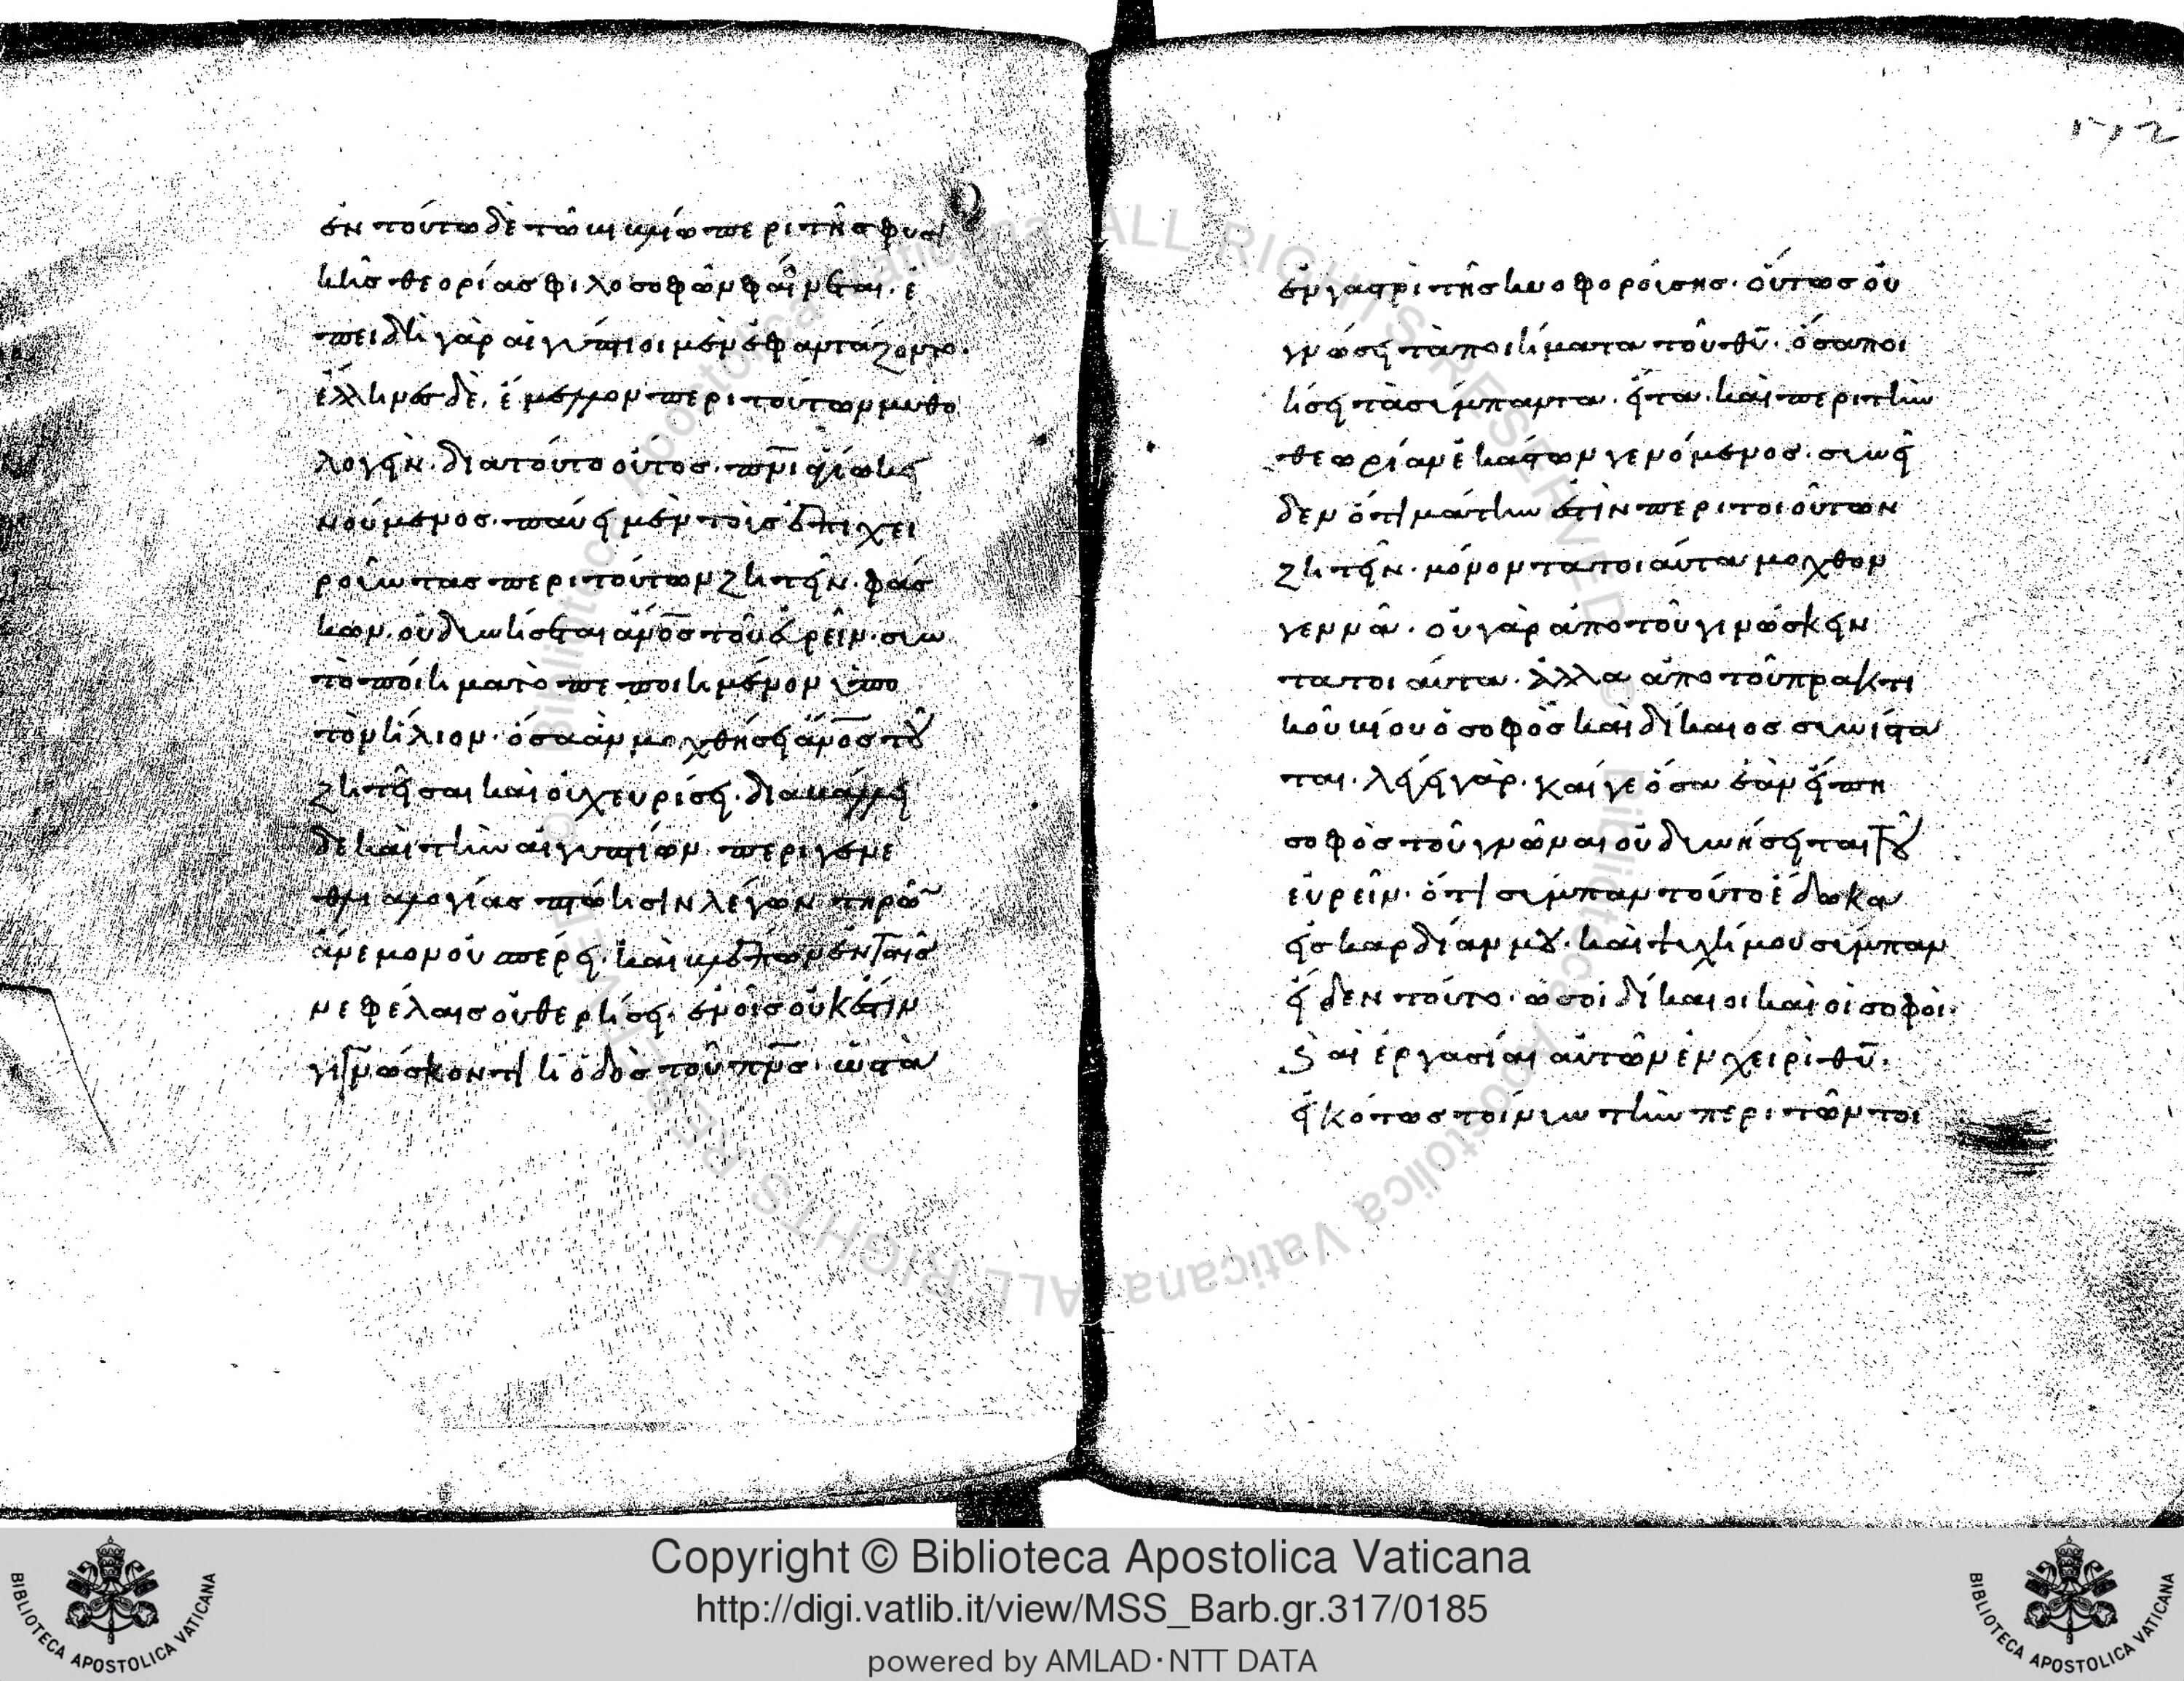 ἐν τούτω δὲ τῶ κειμένω περι τῆσ φυσι
κῆσ θεορίασ φιλοσοφῶν φαίνεται. ἐ
πειδὴ γὰρ αἰγύπτιοι μὲν ἐφαντάζοντο.
ἕλληνεσ δὲ. ἔμελλον περι τούτων μυθο
λογεῖν. διατούτο οὗτοσ. πνι
νούμενοσ. παύει μὲν τοὶσ ἐπιχει
ροῦντασ περιτούτων ζητεῖν. φάσ
κων. οὐ δυνήσεται ἄνοσ τοῦ εὑρεῖν. συν
τὸ ποίημα τὸ πεποιημένον ὑπο
τὸν ἥλιον. ὅσα ἂν μοχθήσει ἄνοσ τοῦ
ζητῆσαι καὶ οὐχ ευρίσει. διακόπτει
δὲ καὶ τὴν αἰγυπτίων περι γενε
θλιαλογίασ πτόησιν λέγων τηρῶν
ἄνεμον οὐ σπέρει. καὶ βλέπων ἐν ταῖσ
νεφέλαισ οὐ θερήσει. ἐν οἷσ οὐκ ἔστιν
γινώσκον τί ἡ ὁδὸσ τοῦ πνσ. ὡσ τὰ
ἐν γαστρὶ τῆσ κυοφορούσησ. οὕτωσ οὐ
γνώσει τὰ ποιήματα τοῦ θυ. ὅσα ποι
ήσει τὰ σύμπαντα. εἶτα. καὶ περι τὴν
θεωρίαν ἑκάστων γενόμενοσ. συνεῖ
δεν ὅτι μάτην ἐστὶν περι τοιοῦτων
ζητεῖν. μόνον τα τοιαύτα μοχθον
γεννᾶ. οὐ γὰρ ἀπο τοῦ γινώσκειν
τα τοιαύτα. ἀλλα ἀπο τοῦ πρακτι
κοῦ βίου ὁ σοφὸσ καὶ δίκαιοσ συνίστα
ται. λέγει γὰρ. καίγε ὅσα ἐὰν εἴπη
σοφὸσ τοῦ γνῶναι οὐ δυνήσεται τοῦ
εὑρεῖν. ὅτι σύμπαν τούτο ἔδωκα
εἰσ καρδίαν μου. καὶ ψυχή μου σύμπαν
εἶδεν τούτο. ὡσ οἱ δίκαιοι καὶ οἱ σοφοὶ.
καὶ αἱ ἐργασίαι αὐτῶν ἐν χειρὶ θυ.
εἰκότωσ τοίνυν τὴν περι τῶν τοι
Copyright © Biblioteca Apostolica Vaticana
http://digi.vatlib.it/view/MSS_Barb.gr.317/0185
powered by AMLAD·NTT DATA
BIBLIOTECA APOSTOLICA VATICANA
BIBLIOTECA APOSTOLICA VATICANA